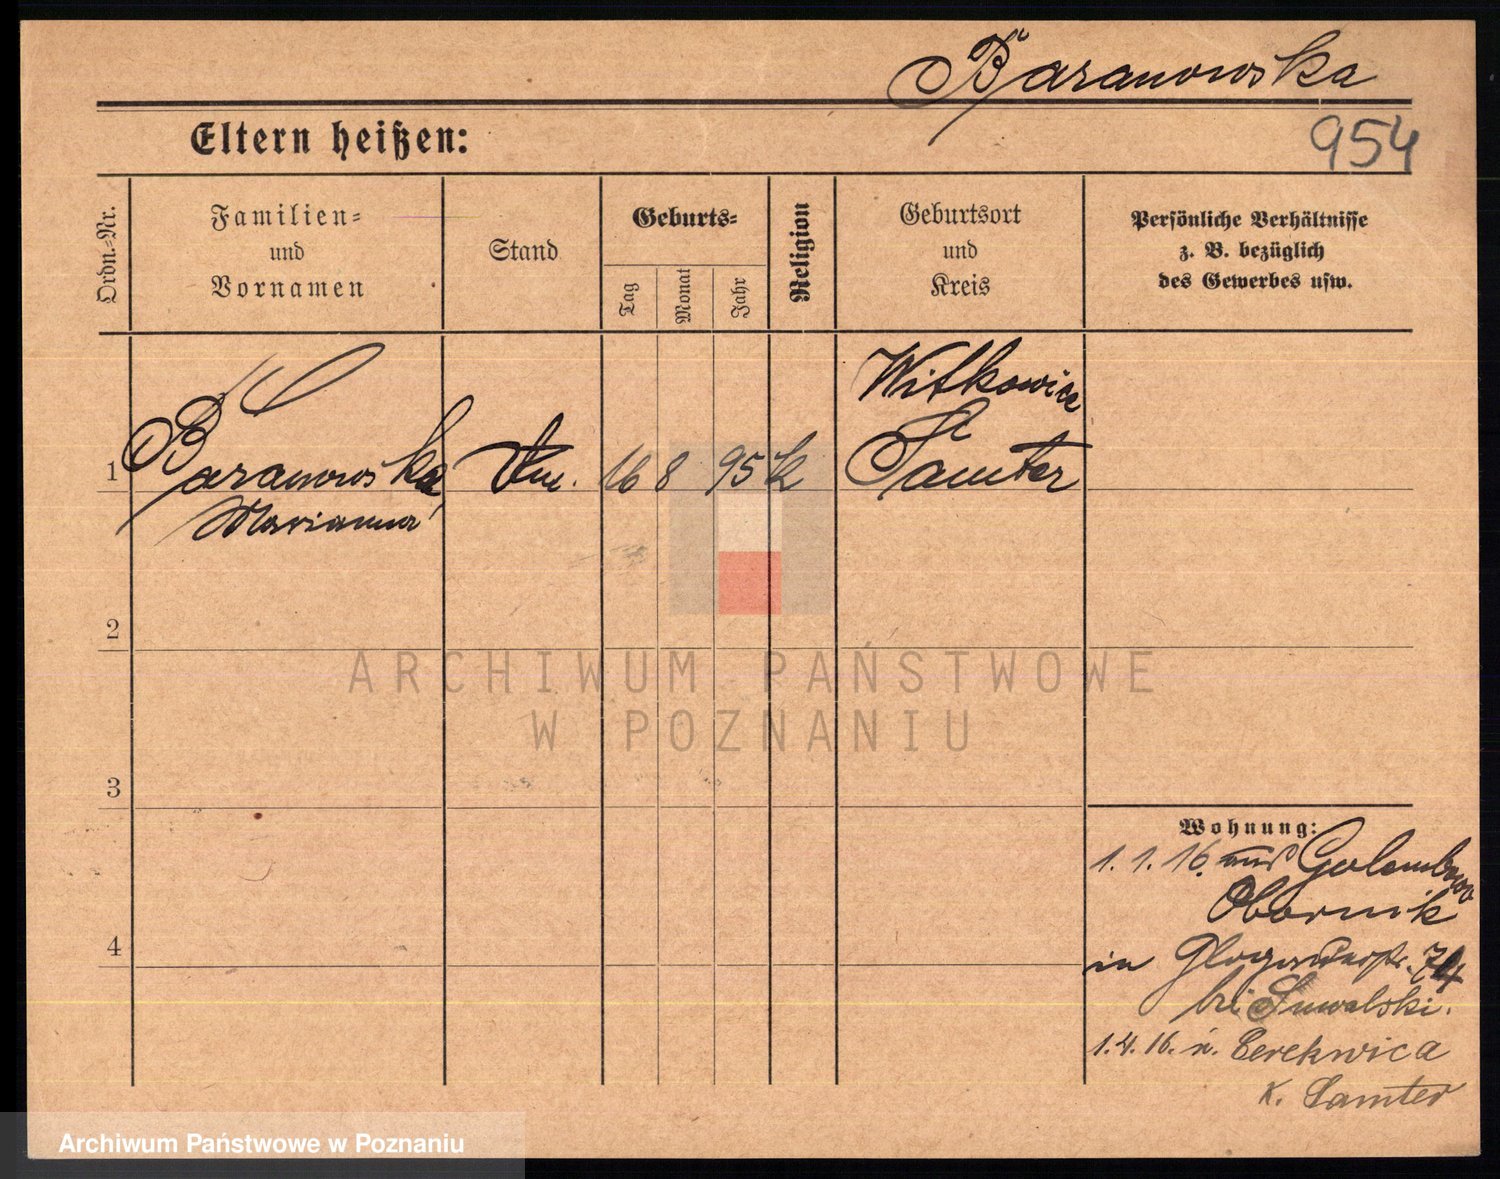 Baranowska
954
Eltern heißen:
Ordn.-Nr.
Familien-
und
Vornamen
Stand
Geburts-
Tag
Monat
Jahr
Religion
Geburtsort
und
Kreis
Persönliche Verhältnisse
z. B. bezüglich
des Gewerbes usw.
1
Baranowska,
Marianna
16 8 95 k
Witkowice
Samter
2
3
4
Wohnung:
1. 1. 16. aus Golembowo
Obornik
in Glogauerstr. 74
bei Suwalski.
1. 4. 16. n. Cerekwica
K. Samter
ARCHIWUM PAŃSTWOWE
W POZNANIU
Archiwum Państwowe w Poznaniu